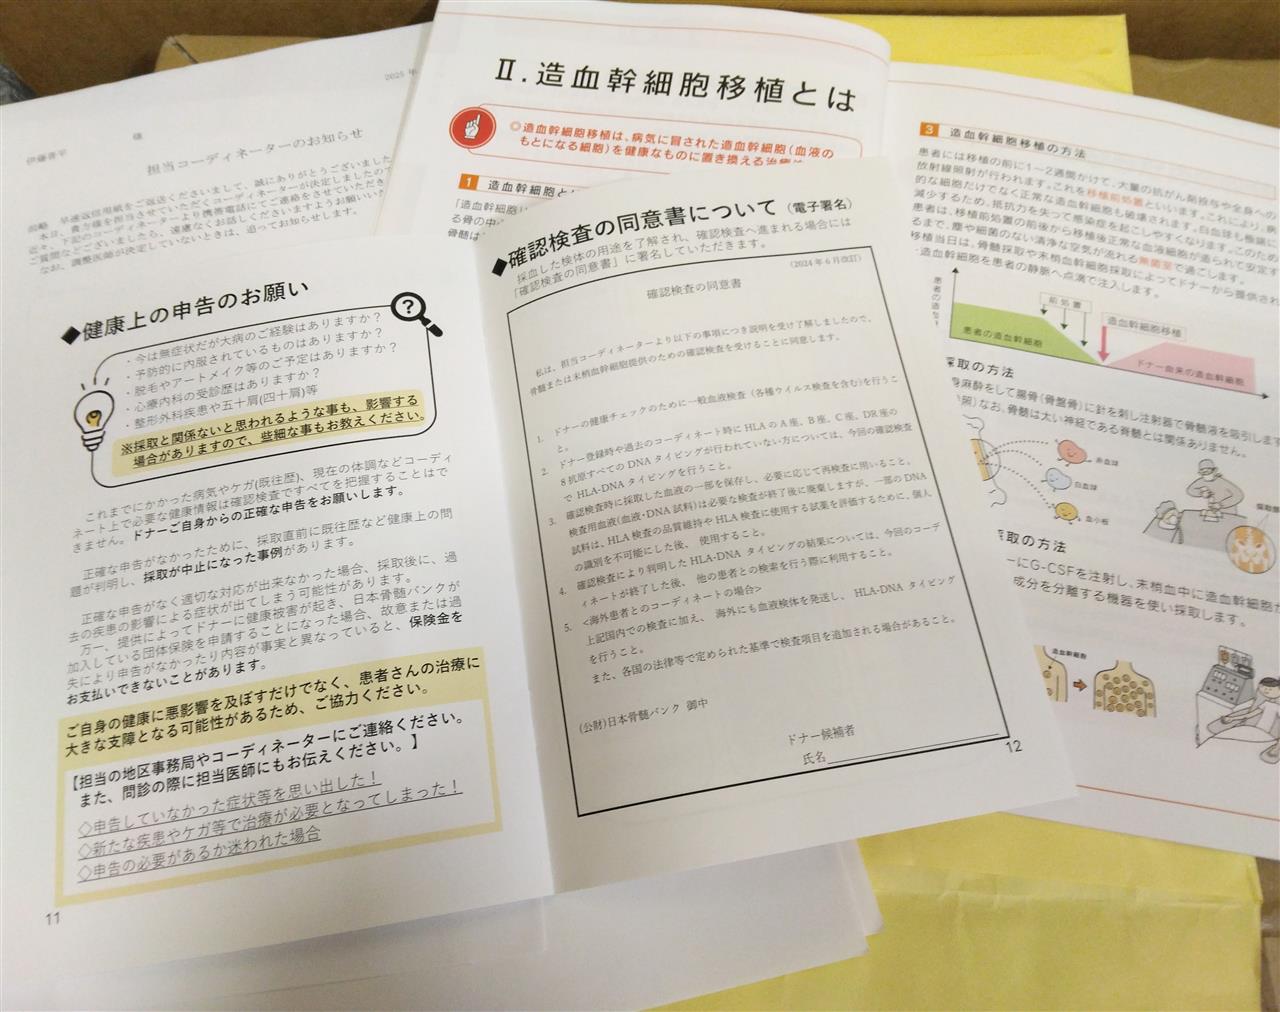 2025 年
様
伊藤
担当コーディネーターのお知らせ
前略 早速返信用紙をご返送くださいまして、誠にありがとうございました
本日、貴方様を担当させていただくコーディネーターが決定しましたので
近々、下記のコーディネーターより携帯電話にてご連絡をさせていただき
ご質問などございましたら、遠慮なくお話しくださいますようお願いいた
なお、調整医師が決定していないときは、追ってお知らせします。
Ⅱ.造血幹細胞移植とは
◎造血幹細胞移植は、病気に冒された造血幹細胞(血液の
もとになる細胞)を健康なものに置き換える治療
1 造血幹細胞と
「造血幹細胞
る骨の中
髄は
3 造血幹細胞移植の方法
患者には移植の前に1~2週間かけて、大量の抗がん剤投与や全身への
放射線照射が行われます。これを移植前処置といいます。これにより、病
的な細胞だけでなく正常な造血幹細胞も破壊されます。白血球も極端に
減少するため、抵抗力を失って感染症を起こしやすくなります。このため
患者は、移植前処置の前後から移植後正常な血液細胞が造られて安定す
るまで、塵や細菌のない清浄な空気が流れる無菌室で過ごします。
移植当日は、骨髄採取や末梢血幹細胞採取によってドナーから提供され
造血幹細胞を患者の静脈へ点滴で注入します。
患者の造血
前処置
造血幹細胞移植
患者の造血幹細胞
ドナー由来の造血幹細胞
採取の方法
身麻酔をして腸骨(骨盤骨)に針を刺し注射器で骨髄液を吸引します
照)なお、骨髄は太い神経である脊髄とは関係ありません。
赤血球
白血球
血小板
採取の方法
ーにG-CSFを注射し、末梢血中に造血幹細胞が
成分を分離する機器を使い採取します。
造血幹細胞
◆健康上の申告のお願い
・今は無症状だが大病のご経験はありますか?
・予防的に内服されているものはありますか?
・脱毛やアートメイク等のご予定はありますか?
・心療内科の受診歴はありますか?
・整形外科疾患や五十肩(四十肩)等
※採取と関係ないと思われるような事も、影響する
場合がありますので、些細な事もお教えください。
これまでにかかった病気やケガ(既往歴)、現在の体調などコーディ
ネート上で必要な健康情報は確認検査ですべてを把握することはで
きません。ドナーご自身からの正確な申告をお願いします。
正確な申告がなかったために、採取直前に既往歴など健康上の問
題が判明し、採取が中止になった事例があります。
正確な申告がなく適切な対応が出来なかった場合、採取後に、過
去の疾患の影響による症状が出てしまう可能性があります。
万一、提供によってドナーに健康被害が起き、日本骨髄バンクが
加入している団体保険を申請することになった場合、故意または過
失により申告がなかったり内容が事実と異なっていると、保険金を
お支払いできないことがあります。
ご自身の健康に悪影響を及ぼすだけでなく、患者さんの治療に
大きな支障となる可能性があるため、ご協力ください。
【担当の地区事務局やコーディネーターにご連絡ください。
また、問診の際に担当医師にもお伝えください。】
◇申告していなかった症状等を思い出した!
◇新たな疾患やケガ等で治療が必要となってしまった!
◇申告の必要があるか迷われた場合
11
◆確認検査の同意書について(電子署名)
採血した検体の用途を了解され、確認検査へ進まれる場合には
「確認検査の同意書」に署名していただきます。
(2024年6月改訂)
確認検査の同意書
私は、担当コーディネーターより以下の事項につき説明を受け了解しましたので、
骨髄または末梢血幹細胞提供のための確認検査を受けることに同意します。
1. ドナーの健康チェックのために一般血液検査(各種ウイルス検査を含む)を行うこ
と。
2. ドナー登録時や過去のコーディネート時にHLAのA座、B座、C座、DR座の
8抗原すべてのDNAタイピングが行われていない方については、今回の確認検査
でHLA-DNAタイピングを行うこと。
3. 確認検査時に採取した血液の一部を保存し、必要に応じて再検査に用いること。
検査用血液(血液・DNA試料)は必要な検査が終了後に廃棄しますが、一部のDNA
試料は、HLA検査の品質維持やHLA検査に使用する試薬を評価するために、個人
の識別を不可能にした後、使用すること。
4. 確認検査により判明したHLA-DNAタイピングの結果については、今回のコーデ
ィネートが終了した後、他の患者との検索を行う際に利用すること。
5. <海外患者とのコーディネートの場合>
上記国内での検査に加え、海外にも血液検体を発送し、HLA-DNAタイピング
を行うこと。
また、各国の法律等で定められた基準で検査項目を追加される場合があること。
(公財)日本骨髄バンク 御中
ドナー候補者
氏名
12